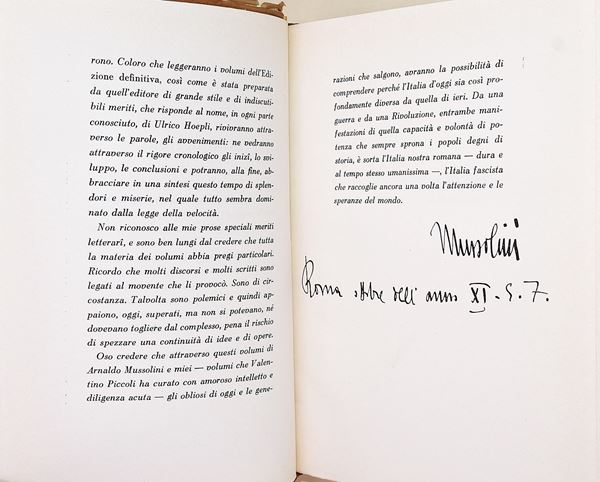 rono. Coloro che leggeranno i volumi dell'Edi-
zione definitiva, così come è stata preparata
da quell'editore di grande stile e di indiscuti-
bili meriti, che risponde al nome, in ogni parte
conosciuto, di Ulrico Hoepli, rivivranno attra-
verso le parole, gli avvenimenti: ne vedranno
attraverso il rigore cronologico gli inizi, lo svi-
luppo, le conclusioni e potranno, alla fine, ab-
bracciare in una sintesi questo tempo di splen-
dori e miserie, nel quale tutto sembra domi-
nato dalla legge della velocità.
Non riconosco alle mie prose speciali meriti
letterarî, e sono ben lungi dal credere che tutta
la materia dei volumi abbia pregi particolari.
Ricordo che molti discorsi e molti scritti sono
legati al movente che li provocò. Sono di cir-
costanza. Talvolta sono polemici e quindi ap-
paiono, oggi, superati, ma non si potevano, né
dovevano togliere dal complesso, pena il rischio
di spezzare una continuità di idee e di opere.
Oso credere che attraverso questi volumi di
Arnaldo Mussolini e miei — volumi che Valen-
tino Piccoli ha curato con amoroso intelletto e
diligenza acuta — gli obliosi di oggi e le gene-
razioni che salgono, avranno la possibilità di
comprendere perché l'Italia d'oggi sia così pro-
fondamente diversa da quella di ieri. Da una
guerra e da una Rivoluzione, entrambe mani-
festazioni di quella capacità e volontà di po-
tenza che sempre sprona i popoli degni di
storia, è sorta l'Italia nostra romana — dura e
al tempo stesso umanissima —, l'Italia fascista
che raccoglie ancora una volta l'attenzione e le
speranze del mondo.
Mussolini
Roma dell'anno XI -